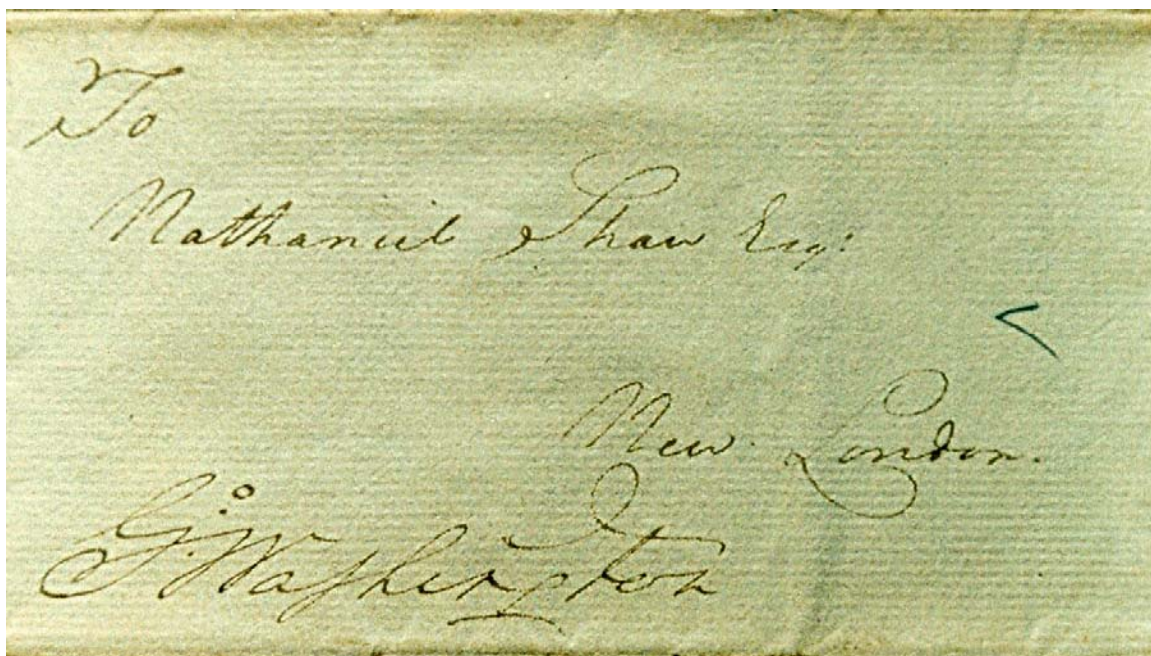 To
Nathaniel Shaw Esqr:
New London.
Go: Washington